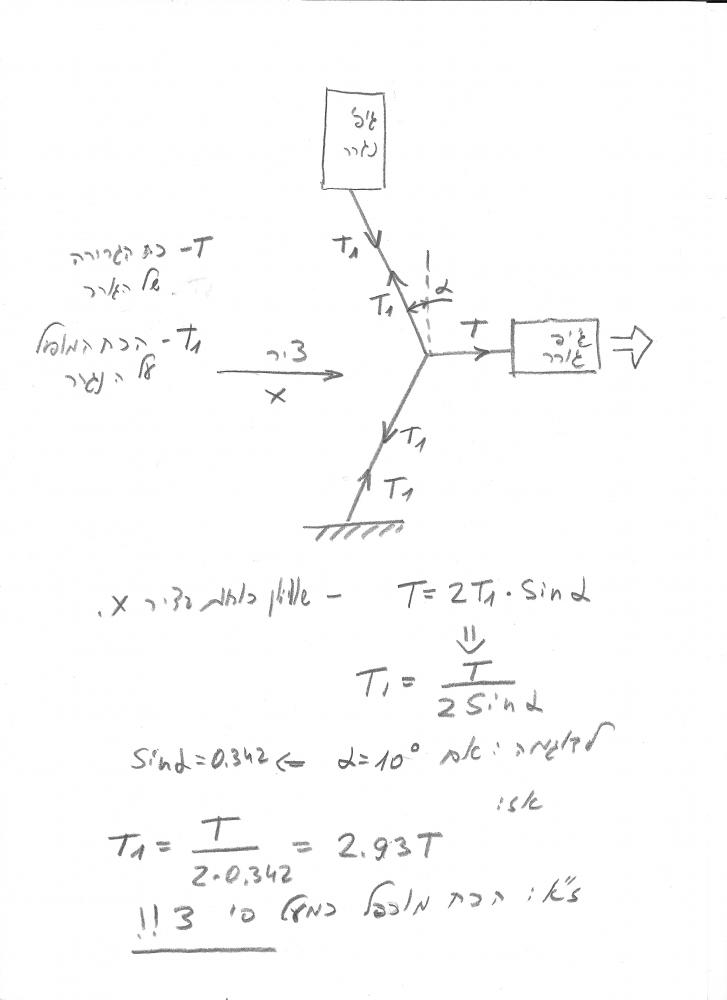 ג'יפ
נגרר
T - כח הגרירה
של הגורר
T₁ - הכח המופעל
על הנגרר
ציר
X
T₁
T₁
α
T
ג'יפ
גורר
T₁
T₁
T = 2T₁ · Sin α - שוויון כוחות בציר X.
⇓
T₁ = T / 2 Sin α
לדוגמה: אם α=10° ⇐ Sinα=0.342
אז:
T₁ = T / 2·0.342 = 2.93T
ז"א: הכח מוכפל כמעט פי 3 !!